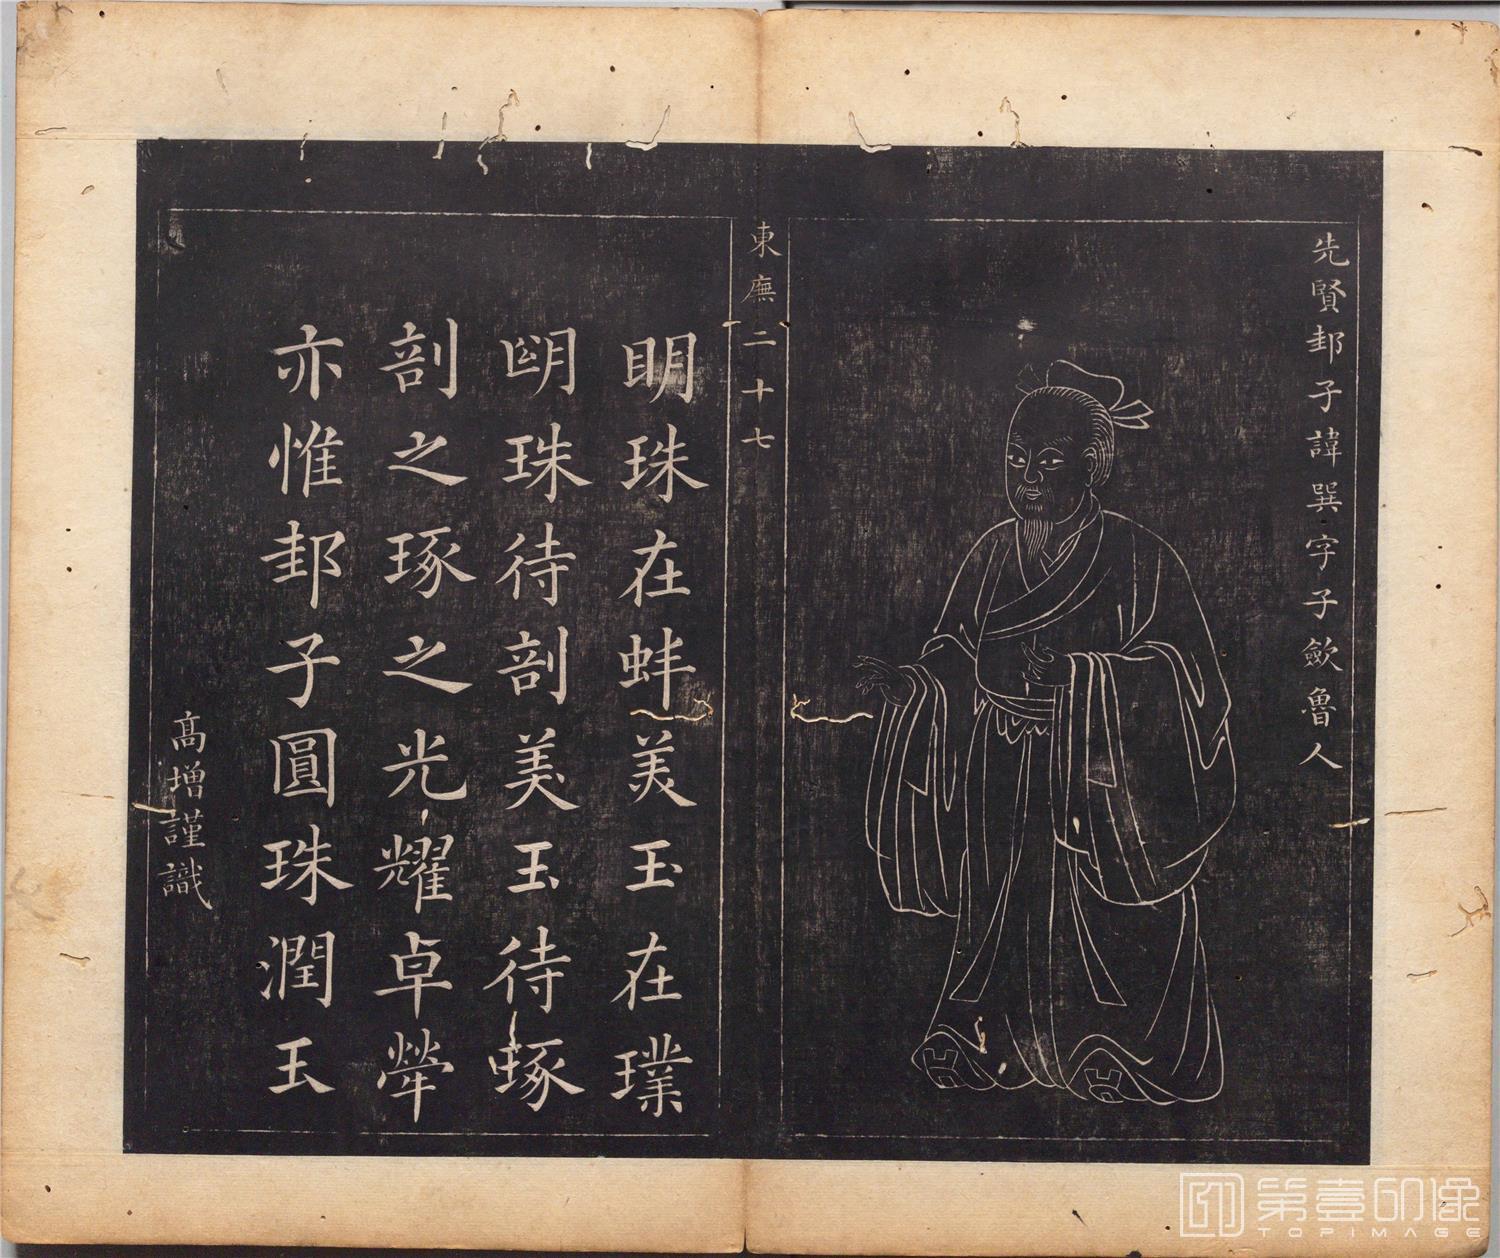 先賢邽子諱巽字子歛魯人
東廡二十七
明珠在蚌美玉在璞
明珠待剖美玉待琢
剖之琢之光耀卓犖
亦惟邽子圓珠潤玉
高增謹識
第壹印像
TOPIMAGE